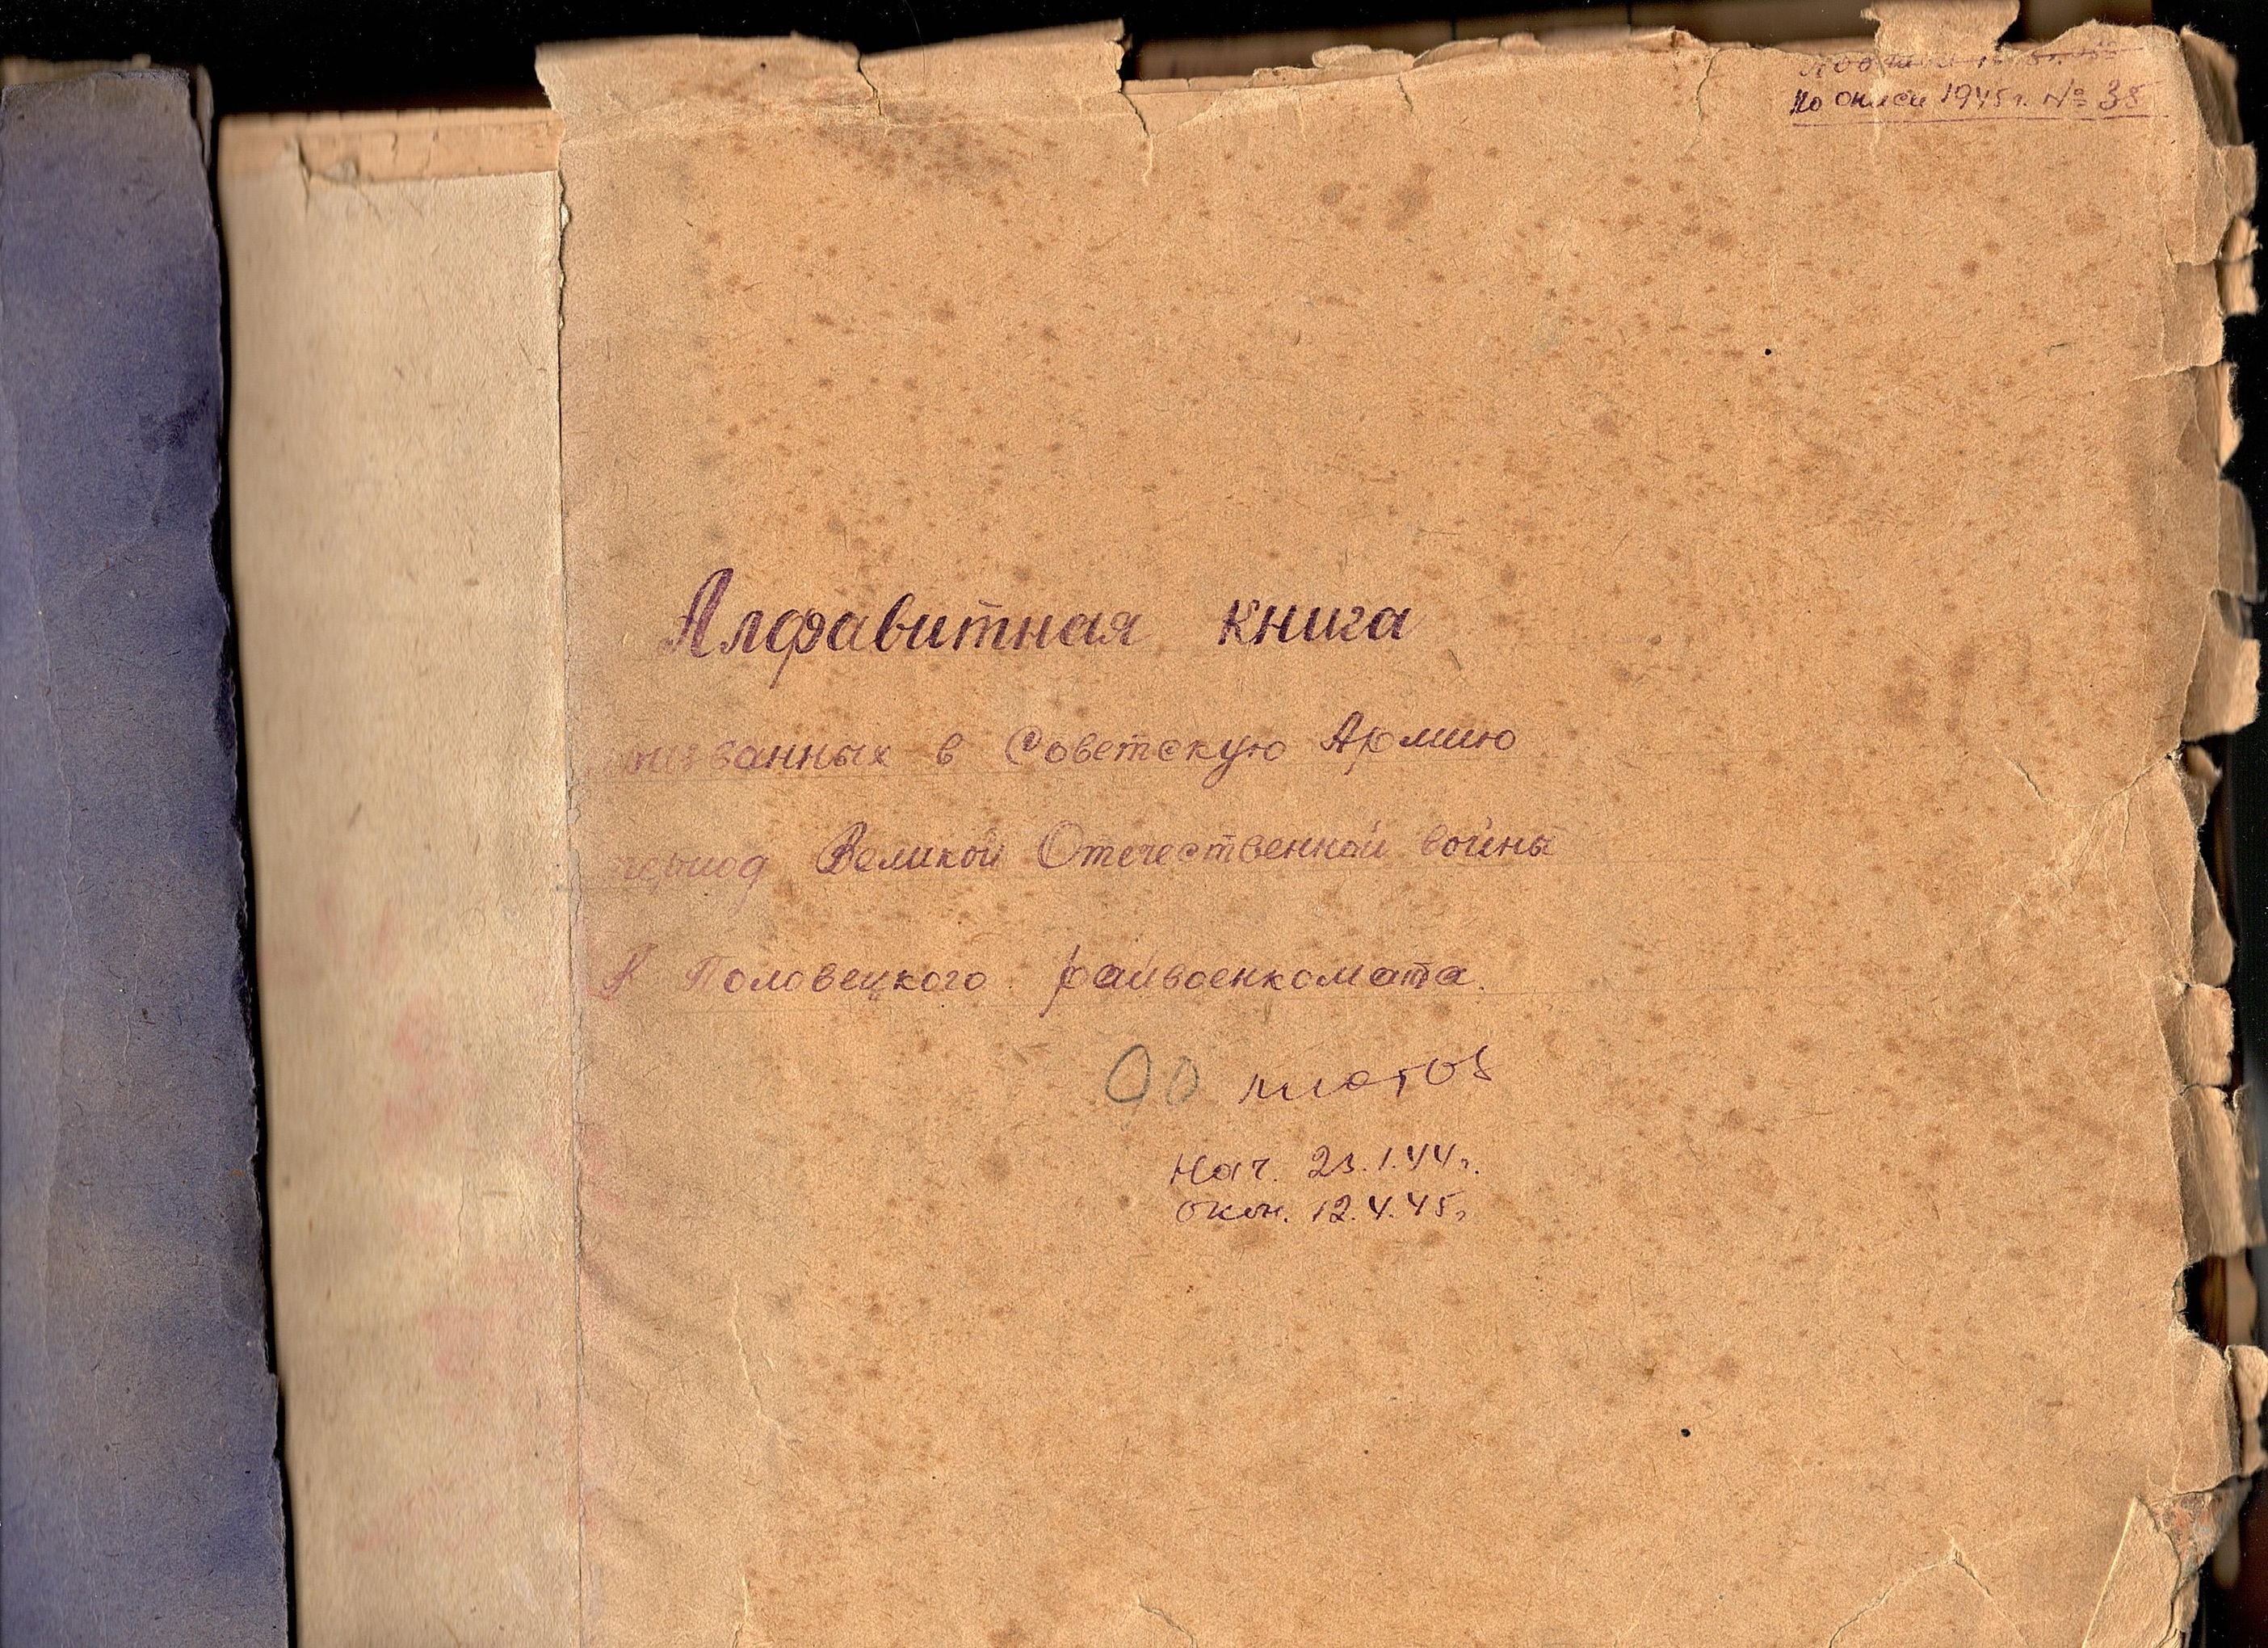 По описи 1945 г. № 38
Алфавитная книга
призванных в Советскую Армию
период Великой Отечественной войны
Половецкого райвоенкомата.
90 листов
Нач. 23.1.44 г.
Окон. 12.4.45 г.